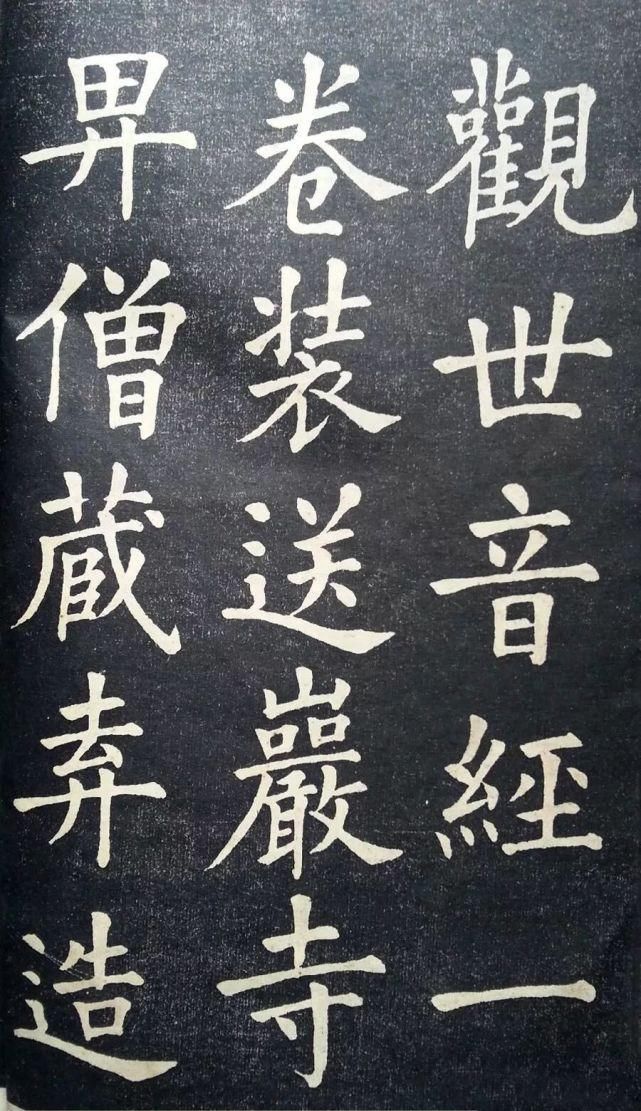 觀世音經一
卷装送巖寺
畀僧蔵弆造